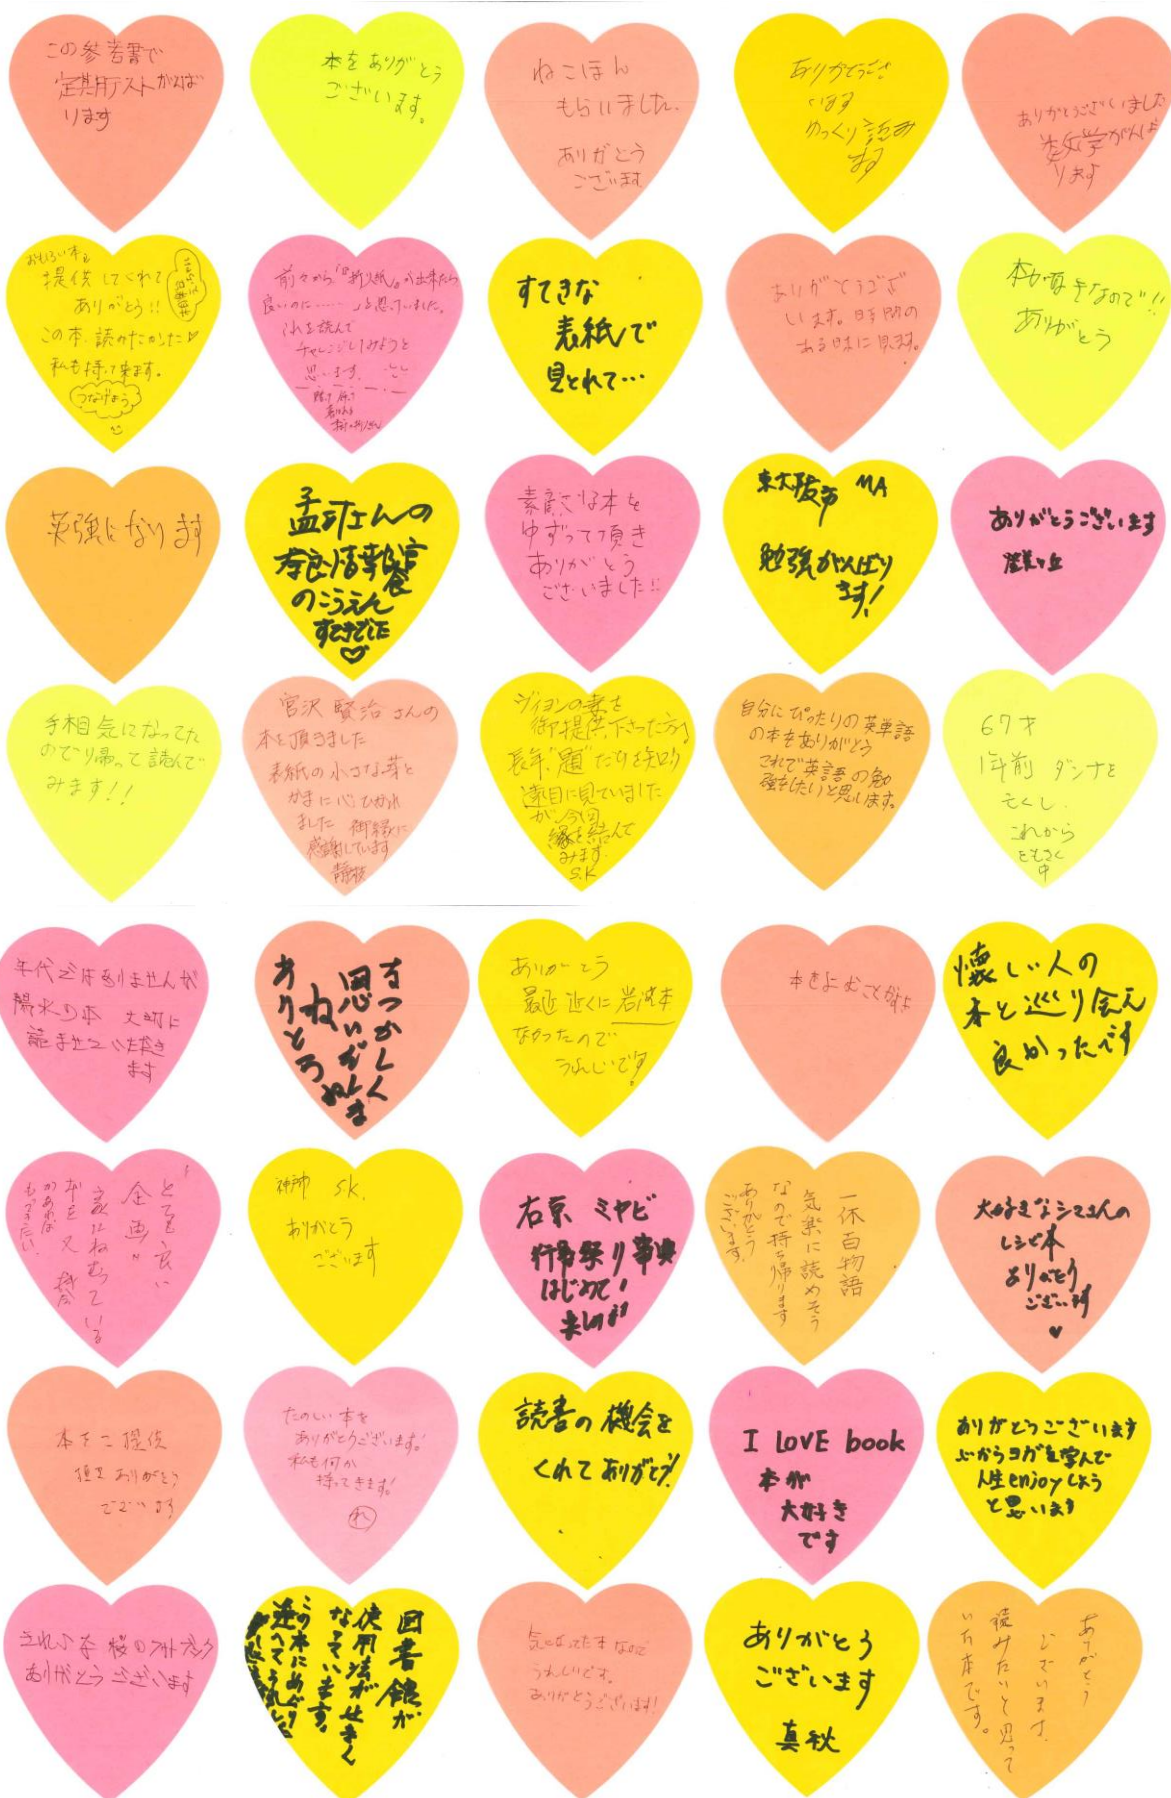 この参考書で
定期テストがんば
ります
本をありがとう
ございます。
ねこほん
もらいました。
ありがとう
ございます
ありがとうござ
います
ゆっくり読み
ます
ありがとうございました
数学がんば
ります
おもしろい本を
提供してくれて
ありがとう!!
この本、読みたかった♡
私も持って来ます。
つなげよう
前々から『折り紙』が出来たら
良いのに……と思っていました。
これを読んで
チャレンジしてみようと
思います。
すてきな
表紙で
見とれて…
ありがとうござ
います。時間の
ある時に見ます。
本が好きなので!!
ありがとう
勉強になります
孟司さんの
奈良情報館
のこうえん
すてきでした
♡
素敵な本を
ゆずって頂き
ありがとう
ございました!!
東大阪市 MA
勉強がんばり
ます!
ありがとうございます
手相気になってた
ので帰って読んで
みます!!
宮沢賢治さんの
本を頂きました
表紙の小さな芽と
かまに心ひかれ
ました 御縁に
感謝しています
ヴィヨンの妻を
御提供下さった方
長年"題"だけを知り
遠目に見ていました
が今回
縁を結んで
みます
S.K
自分にぴったりの英単語
の本をありがとう
これで英語の勉
強をしたいと思います。
67才
1年前 ダンナを
亡くし、
これから
年代ではありませんが
陽水の本 大切に
読ませていただき
ます
ありがとう
最近近くに岩波本
なかったので
うれしいです!
本をよむことがすき
懐しい人の
本と巡り会え
良かったです
とても良い
企画!!
家にねむっている
本を又機会
があれば
もってきたい。
S.K.
ありがとう
ございます
右京 ミヤビ
行事祭り事典
はじめて!
一休百物語
気楽に読めそう
なので持ち帰ります
ありがとう
ございます。
大好きなシマさんの
レシピ本
ありがとう
ございます
♥
本をご提供
頂きありがとう
ございます
たのしい本を
ありがとうございます!
私も何か
持ってきます!
れ
読書の機会を
くれてありがとう!
I LOVE book
本が
大好き
です
ありがとうございます
心からヨガを学んで
人生enjoyしよう
と思います
きれいな桜のフォトブック
ありがとうございます
図書館が
使用法がせまく
なっています。
この本にめぐり
逢へてうれしく
気になってた本なので
うれしいです。
ありがとうございます!
ありがとう
ございます
真秋
ありがとう
ございます。
読みたいと思って
いた本です。